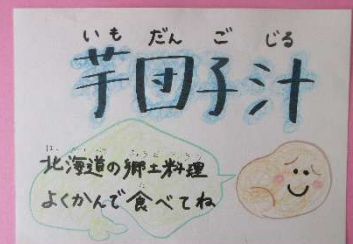 いも だん ご じる
芋団子汁
北海道の郷土料理
よくかんで食べてね